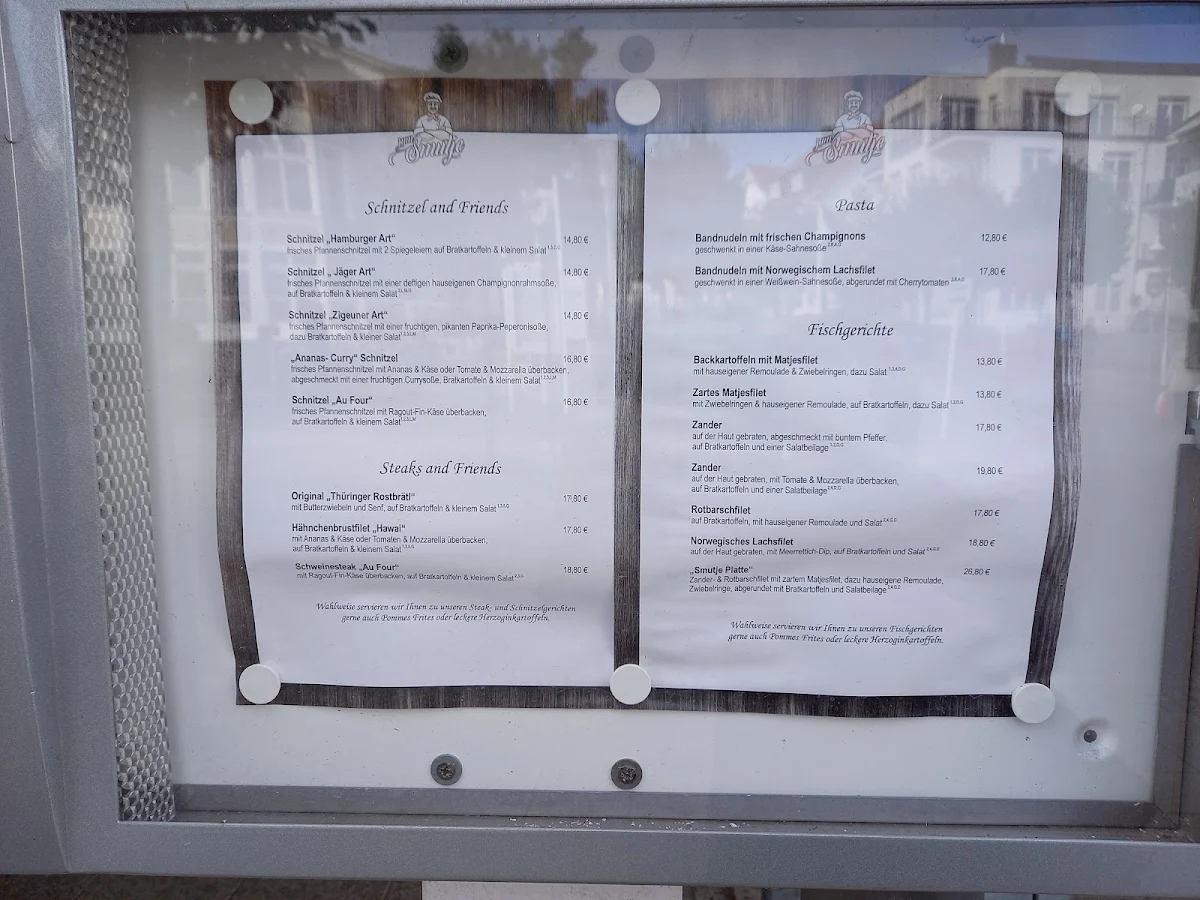 Smutje
Schnitzel and Friends
Schnitzel „Hamburger Art“ 14,80 €
frisches Pfannenschnitzel mit 2 Spiegeleiern auf Bratkartoffeln & kleinem Salat
Schnitzel „ Jäger Art“ 14,80 €
frisches Pfannenschnitzel mit einer deftigen hauseigenen Champignonrahmsoße,
auf Bratkartoffeln & kleinem Salat
Schnitzel „Zigeuner Art“ 14,80 €
frisches Pfannenschnitzel mit einer fruchtigen, pikanten Paprika-Peperonisoße,
dazu Bratkartoffeln & kleiner Salat
„Ananas- Curry“ Schnitzel 16,80 €
frisches Pfannenschnitzel mit Ananas & Käse oder Tomate & Mozzarella überbacken,
abgeschmeckt mit einer fruchtigen Currysoße, Bratkartoffeln & kleinem Salat
Schnitzel „Au Four“ 16,80 €
frisches Pfannenschnitzel mit Ragout-Fin-Käse überbacken,
auf Bratkartoffeln & kleinem Salat
Steaks and Friends
Original „Thüringer Rostbrätl“ 17,80 €
mit Butterzwiebeln und Senf, auf Bratkartoffeln & kleinem Salat
Hähnchenbrustfilet „Hawai“ 17,80 €
mit Ananas & Käse oder Tomaten & Mozzarella überbacken,
auf Bratkartoffeln & kleinem Salat
Schweinesteak „Au Four“ 18,80 €
mit Ragout-Fin-Käse überbacken, auf Bratkartoffeln & kleinem Salat
Wahlweise servieren wir Ihnen zu unseren Steak- und Schnitzelgerichten
gerne auch Pommes Frites oder leckere Herzoginkartoffeln.
Smutje
Pasta
Bandnudeln mit frischen Champignons 12,80 €
geschwenkt in einer Käse-Sahnesoße
Bandnudeln mit Norwegischem Lachsfilet 17,80 €
geschwenkt in einer Weißwein-Sahnesoße, abgerundet mit Cherrytomaten
Fischgerichte
Backkartoffeln mit Matjesfilet 13,80 €
mit hauseigener Remoulade & Zwiebelringen, dazu Salat
Zartes Matjesfilet 13,80 €
mit Zwiebelringen & hauseigener Remoulade, auf Bratkartoffeln, dazu Salat
Zander 17,80 €
auf der Haut gebraten, abgeschmeckt mit buntem Pfeffer,
auf Bratkartoffeln und einer Salatbeilage
Zander 19,80 €
auf der Haut gebraten, mit Tomate & Mozzarella überbacken,
auf Bratkartoffeln und einer Salatbeilage
Rotbarschfilet 17,80 €
auf Bratkartoffeln, mit hauseigener Remoulade und Salat
Norwegisches Lachsfilet 18,80 €
auf der Haut gebraten, mit Meerrettich-Dip, auf Bratkartoffeln und Salat
„Smutje Platte“ 26,80 €
Zander- & Rotbarschfilet mit zartem Matjesfilet, dazu hauseigene Remoulade,
Zwiebelringe, abgerundet mit Bratkartoffeln und Salatbeilage
Wahlweise servieren wir Ihnen zu unseren Fischgerichten
gerne auch Pommes Frites oder leckere Herzoginkartoffeln.